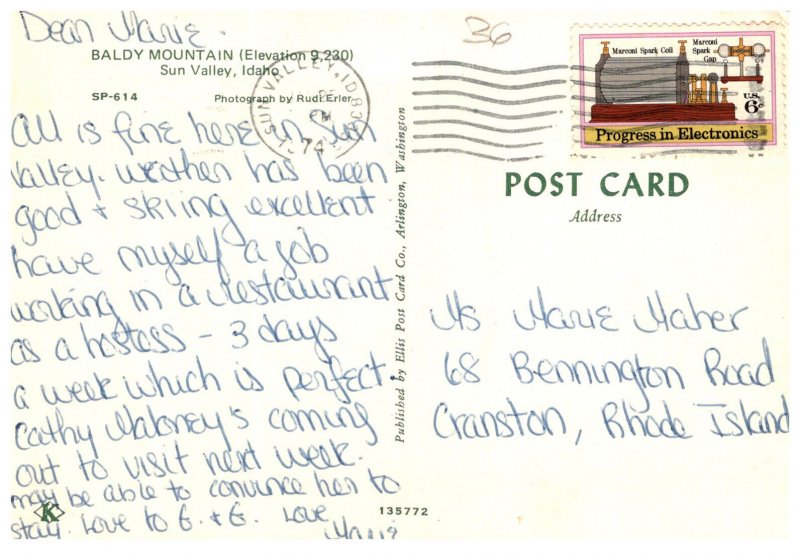 Dear Marie.
BALDY MOUNTAIN (Elevation 9,230)
Sun Valley, Idaho
SP-614
Photograph by Rudi Erler
All is fine here in Sun
Valley. Weather has been
good + skiing excellent
have myself a job
working in a restaurant
as a hostess – 3 days
a week which is perfect.
Cathy Maloney's coming
out to visit next week.
may be able to convince her to
stay. Love to E. & G. Love
Marie
K
135772
Published by Ellis Post Card Co., Arlington, Washington
36
SUN VALLEY, ID 83
1974
Marconi Spark Coil
Marconi
Spark
Gap
U.S.
6c
Progress in Electronics
POST CARD
Address
Ms Marie Maher
68 Bennington Road
Cranston, Rhode Island